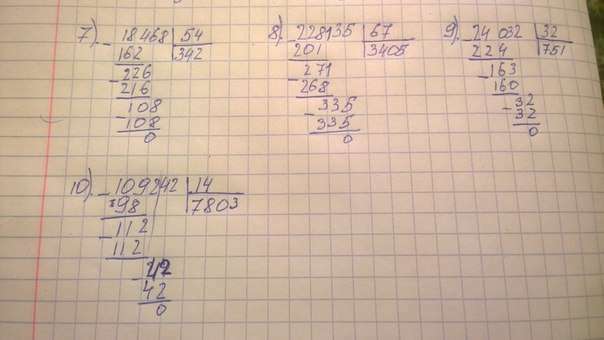 7) - 18468 | 54
162 | 342
- 226
216
- 108
108
0
8) - 228135 | 67
201 | 3405
- 271
268
- 335
335
0
9) - 24032 | 32
224 | 751
- 163
160
- 32
32
0
10) - 109242 | 14
98 | 7803
- 112
112
- 42
42
0